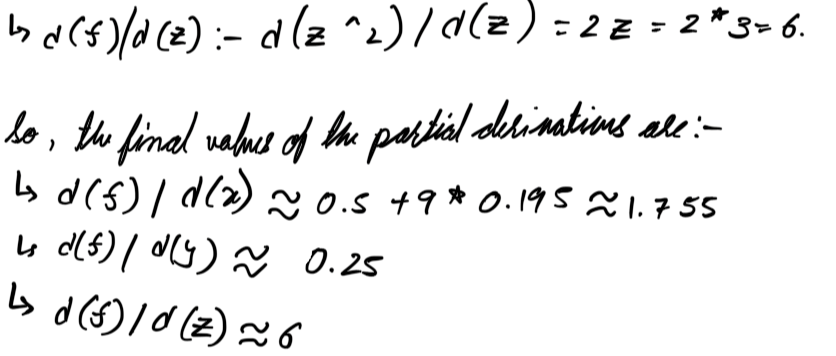 ↳ d(f)/d(z) :- d(z ^2) / d(z) = 2z = 2*3= 6.
So, the final values of the partial derinatives are:-
↳ d(f) / d(x) ≈ 0.5 +9 * 0.195 ≈ 1.755
↳ d(f) / d(y) ≈ 0.25
↳ d(f) / d(z) ≈ 6